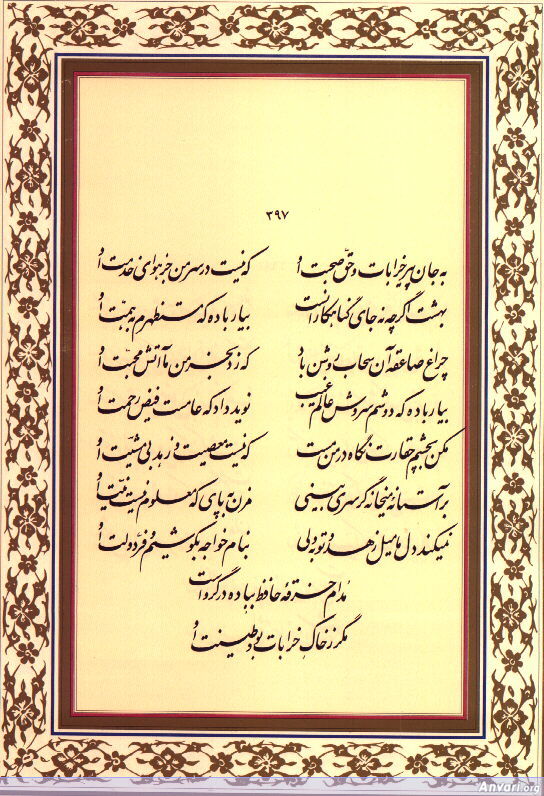 ۳۹۷
به جان پیر خرابات و حقّ صحبت او که نیست در سر من جز هوای خدمت او
بهشت اگرچه نه جای گناهکارانست بیار باده که مستظهرم به همّت او
چراغ صاعقه آن سحاب روشن باد که زد بخرمن ما آتش محبّت او
بیار باده که دوشم سروش عالم غیب نوید داد که عامست فیض رحمت او
مکن بچشم حقارت نگاه در من مست که نیست معصیت و زهد بی مشیّت او
بر آستانه میخانه گر سری بینی مزن به پای که معلوم نیست نیّت او
نمیکند دل ما میل زهد و توبه ولی بنام خواجه بکوشیم و فرّ دولت او
مُدام خرقهٔ حافظ بباده در گروست
مگر ز خاکِ خرابات بود طینت او
Anvari.org